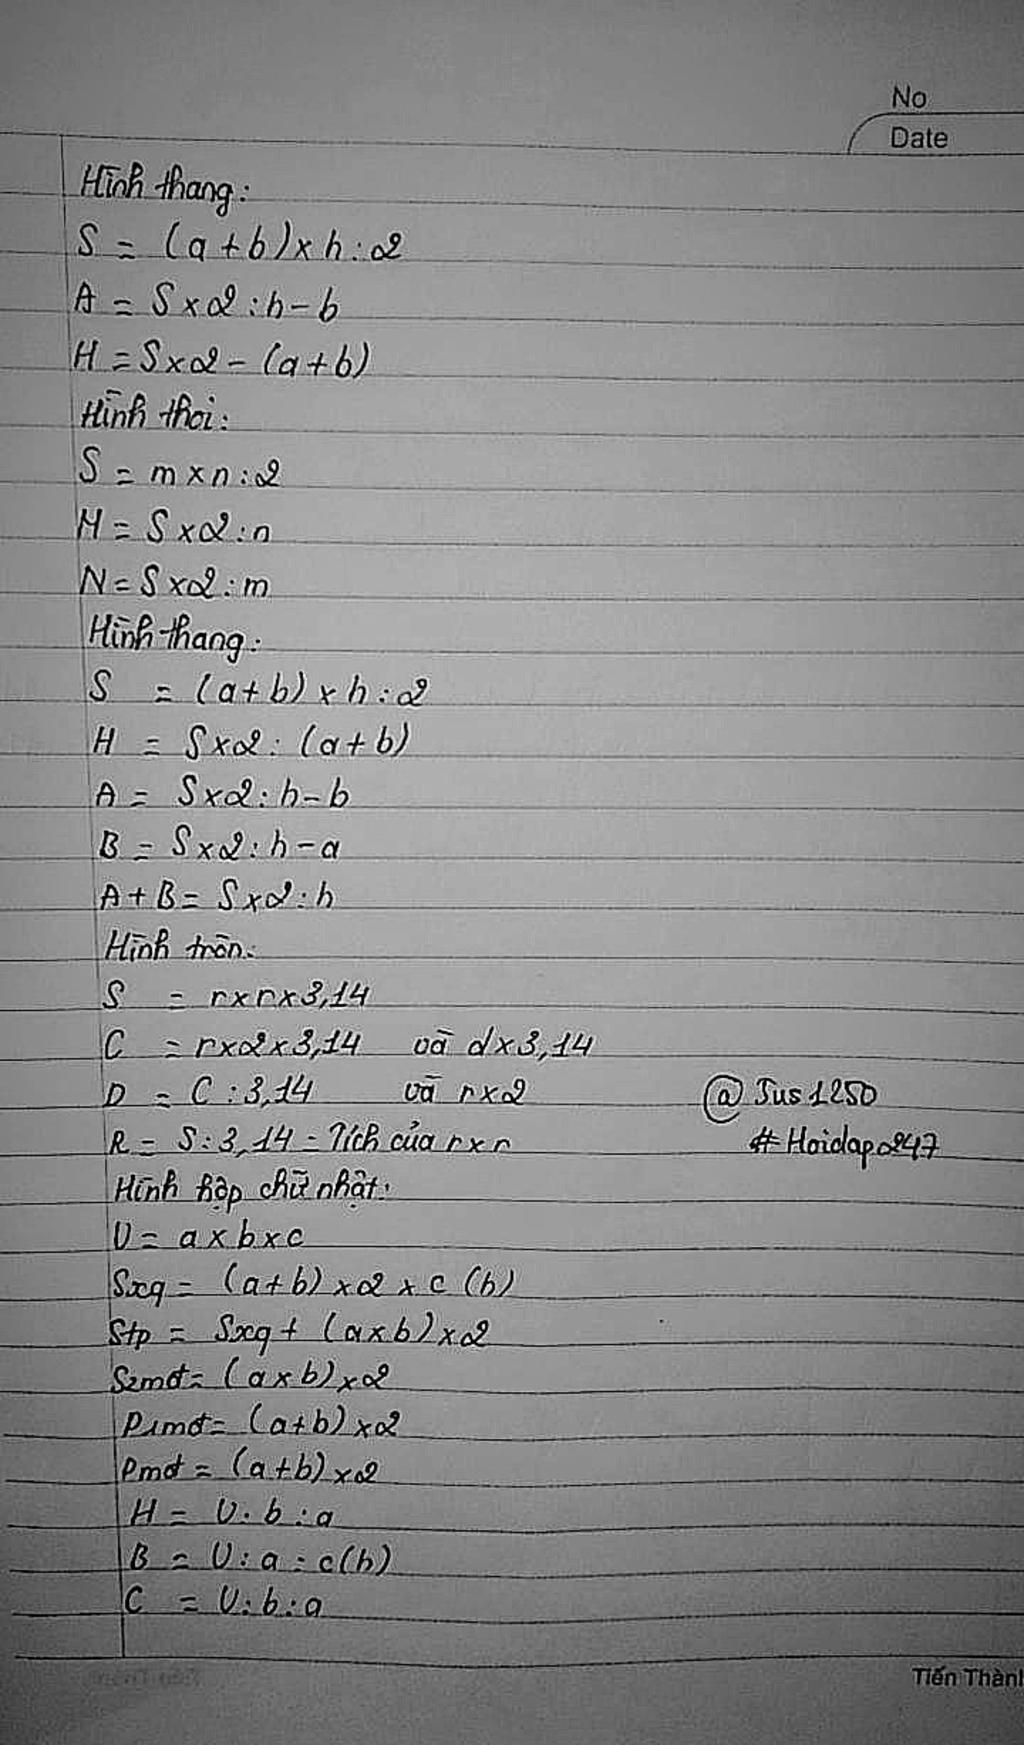 No
Date
Hình thang:
S = (a+b)×h:2
A = S×2:h-b
H = S×2-(a+b)
Hình thoi:
S = m×n:2
M = S×2:n
N = S×2:m
Hình thang:
S = (a+b)×h:2
H = S×2:(a+b)
A = S×2:h-b
B = S×2:h-a
A+B = S×2:h
Hình tròn:
S = r×r×3,14
C = r×2×3,14 và d×3,14
D = C:3,14 và r×2
@Jus1250
R = S:3,14 = Tích của r×r
#Hoidap247
Hình hộp chữ nhật:
V = a×b×c
Sxq = (a+b)×2×c(h)
Stp = Sxq+(a×b)×2
S2mđ = (a×b)×2
P1mđ = (a+b)×2
Pmđ = (a+b)×2
H = V:b:a
B = V:a:c(h)
C = V:b:a